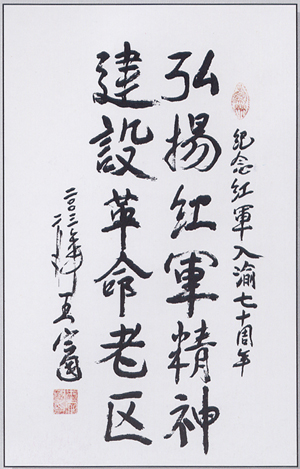 纪念红軍入渝七十周年
弘揚红軍精神
建設革命老区
二〇〇三年
王定國